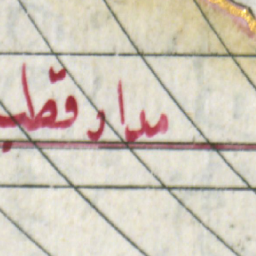 مدار قطب